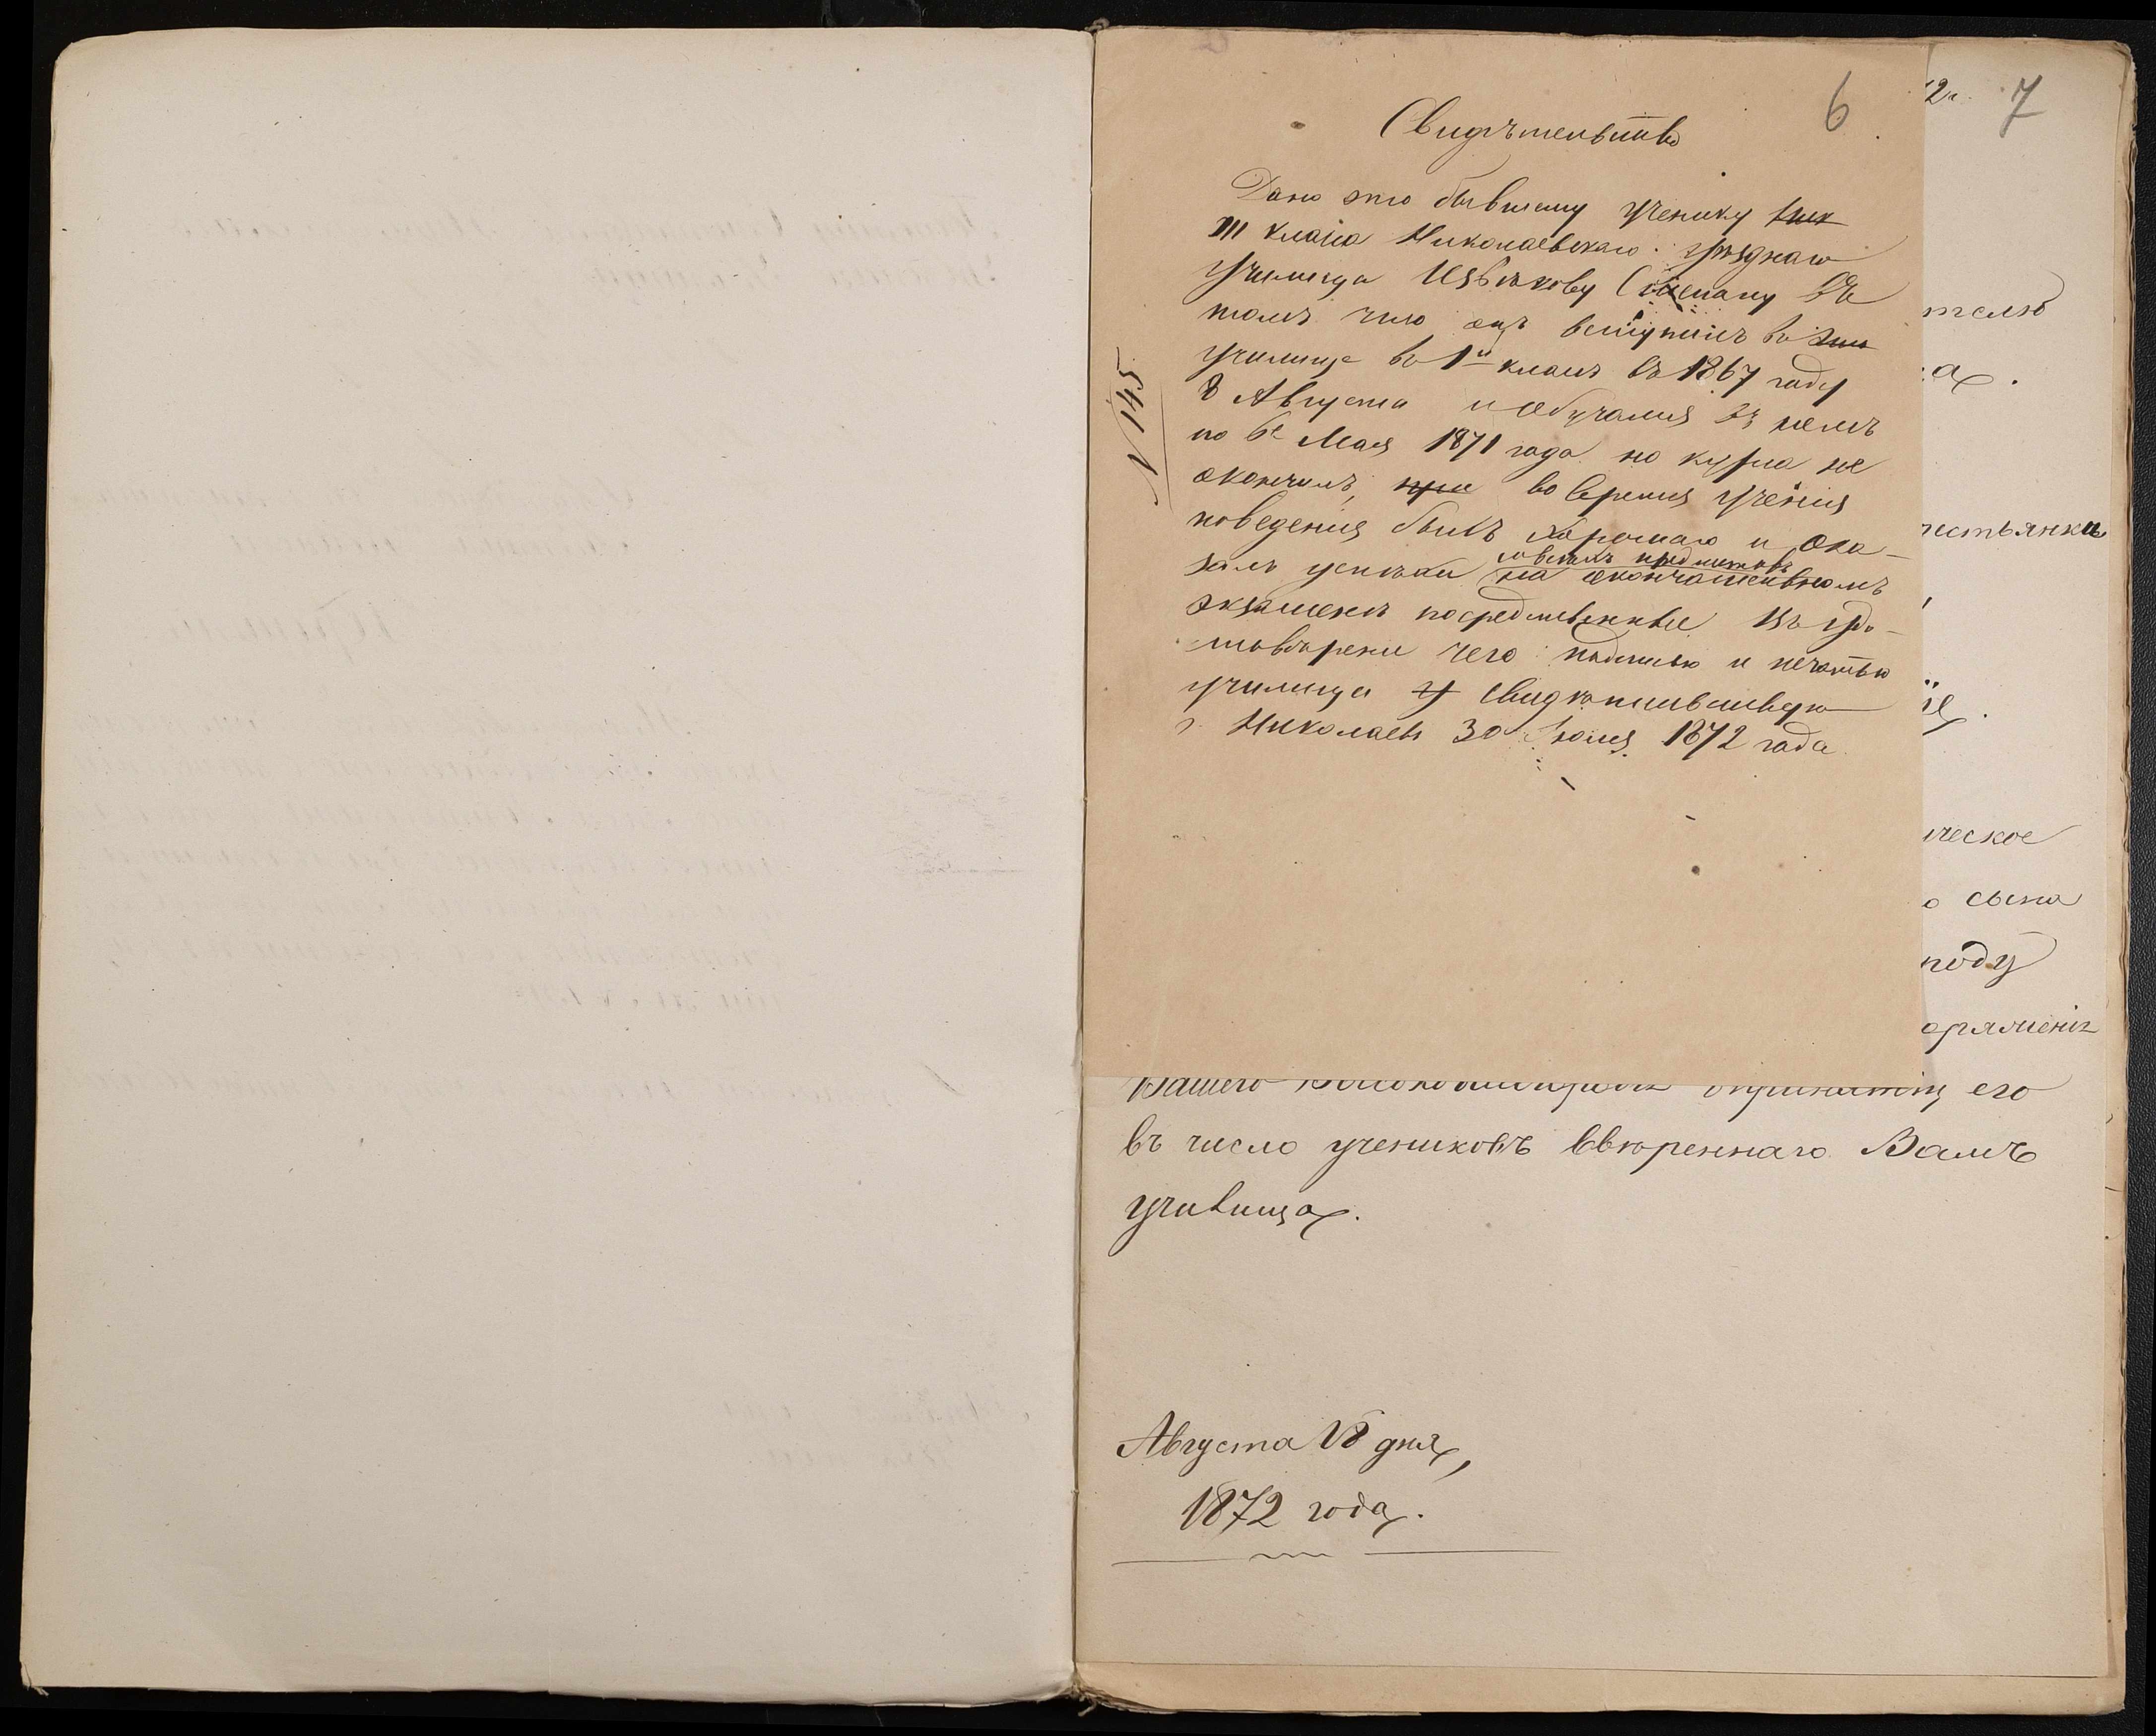 6
Свидѣтельство
Дано это бывшему ученику
III класса Николаевскаго уѣзднаго
училища Извѣкову Степану въ
томъ что онъ вступилъ въ
училище въ 1й классъ въ 1867 году
8 Августа и обучался въ немъ
по 6е Мая 1871 года но курса не
окончилъ, при во время ученія
поведенія былъ хорошаго и ока-
залъ успѣхи на окончательномъ
экзаменѣ посредственные Въ удо-
ствовѣреніи чего подписью и печатью
училища свидѣтельствую
г. Николаевъ 30 Іюля 1872 года
N 145
7
2г.
телю
ха.
рестьянки
ческое
о сына
поду
оряженія
Вашего его
въ число учениковъ ввѣреннаго Вамъ
училища.
Августа 18 дня,
1872 года.